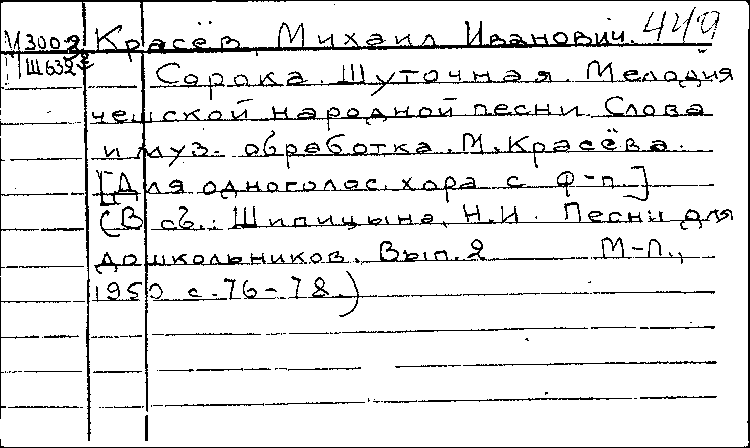 М3002 Красёв, Михаил Иванович. 449
Ш632 Сорока. Шуточная. Мелодия
чешской народной песни. Слова
и муз. обработка. М. Красёва.
[Для одноголос. хора с ф-п.]
(В сб.: Шипицына, Н.И. Песни для
дошкольников. Вып. 2 М-Л.,
1950 с. 76-78.)